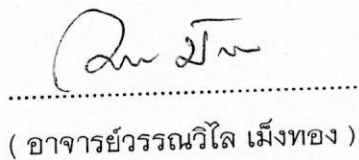 ( อาจารย์วรรณวิไล เม็งทอง )